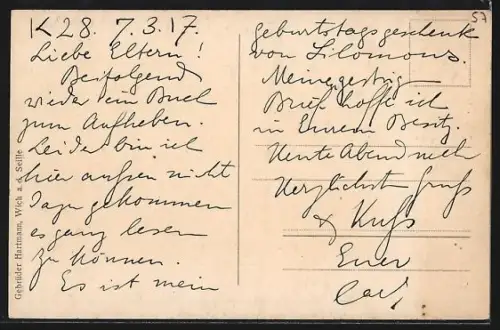 K 28. 7.3.17.
Liebe Eltern!
Beifolgend
wieder ein Buch
zum Aufheben.
Leider bin ich
hier aufsen nicht
dazu gekommen
es ganz lesen
zu können.
Es ist mein
geburtstagsgeschenk
von Silomons.
Meinen gestrig
Brief hoffe ich
in Eurem Besitz.
Heute Abend noch
Herzlichst Gruss
& Kuss
Euer
Carl
57
Gebrüder Hartmann, Wich a. d. Seille